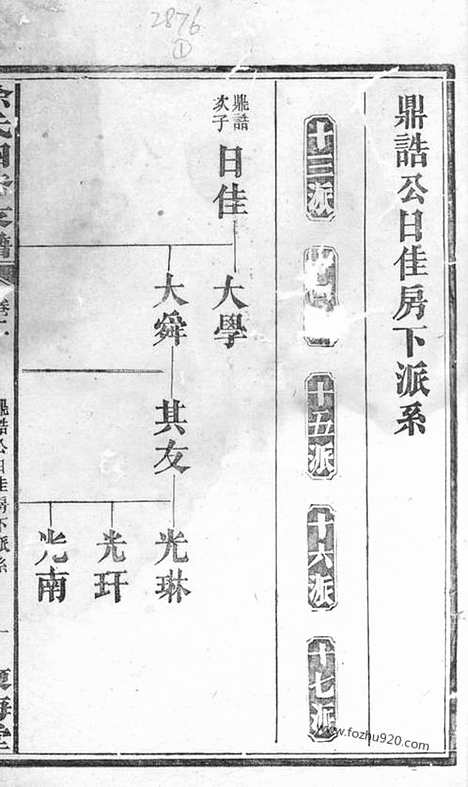 2876
①
鼎誥公日佳房下派系
十三派
十五派
十六派
十七派
鼎誥
次子
日佳
大學
大舜
其友
光琳
光玕
光南
鼎誥公日佳房下派系
一
www.fozhu920.com